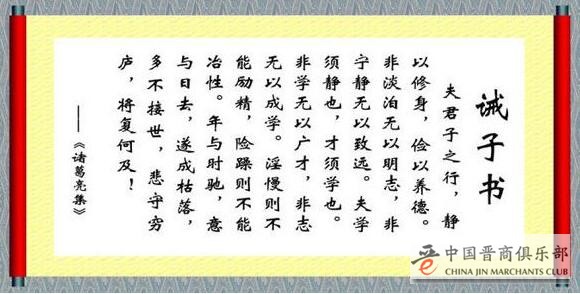 诫子书
夫君子之行，静
以修身，俭以养德。
非淡泊无以明志，非
宁静无以致远。夫学
须静也，才须学也。
非学无以广才，非志
无以成学。淫慢则不
能励精，险躁则不能
冶性。年与时驰，意
与日去，遂成枯落，
多不接世，悲守穷
庐，将复何及！
——《诸葛亮集》
中国晋商俱乐部
CHINA JIN MARCHANTS CLUB